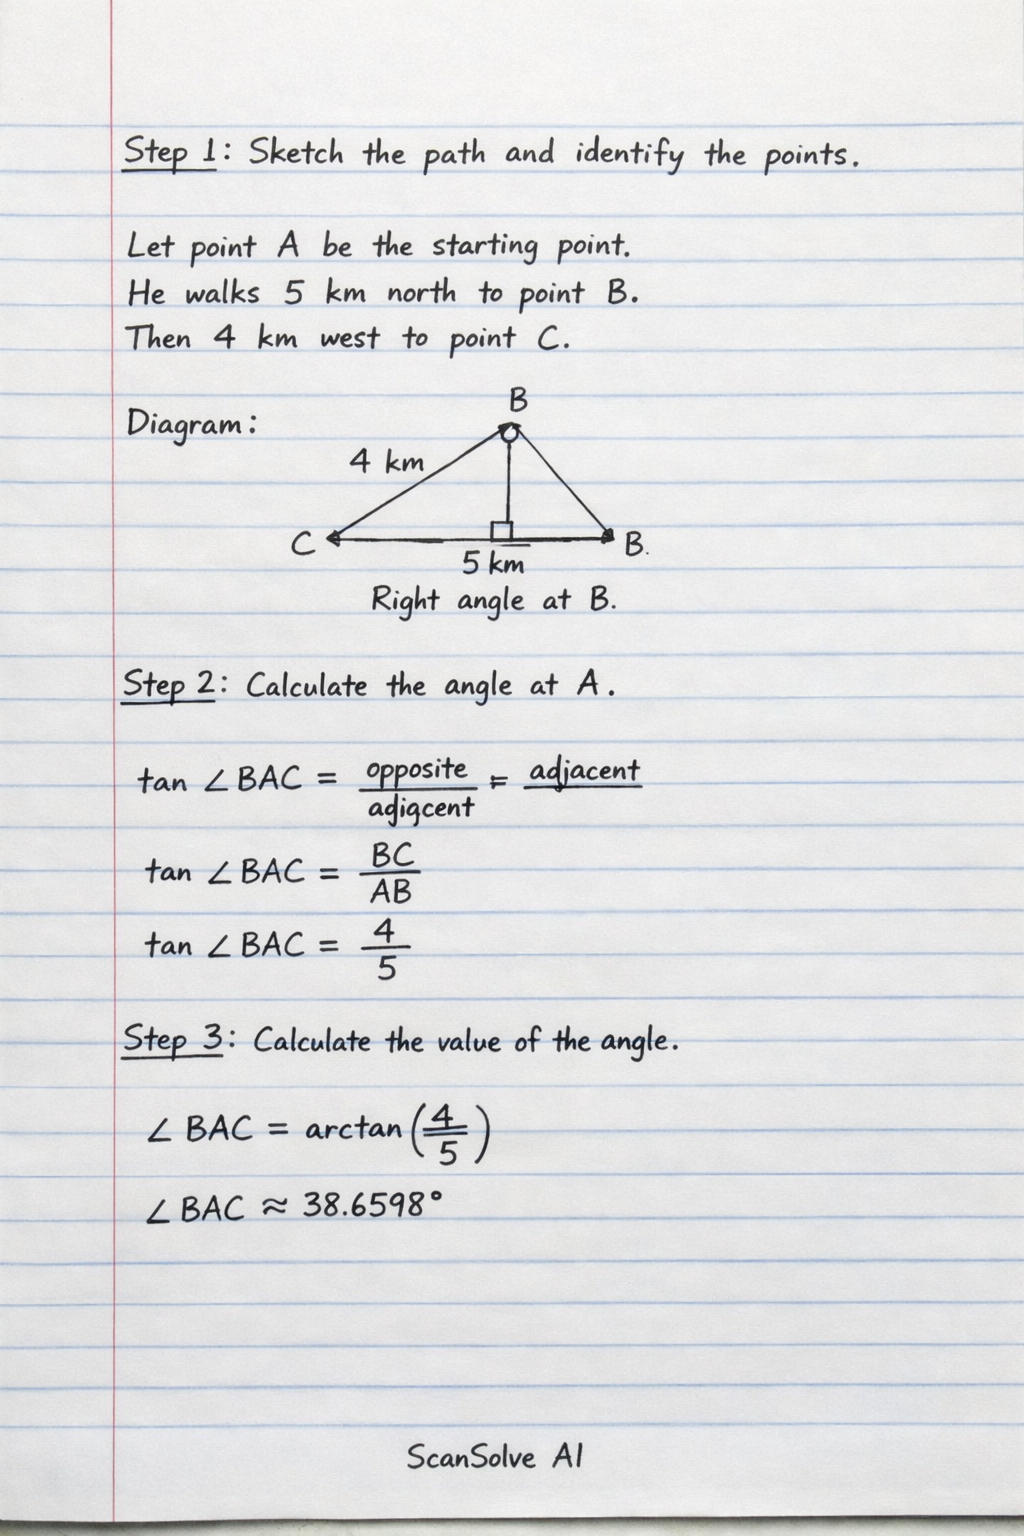 Step 1: Sketch the path and identify the points.
Let point A be the starting point.
He walks 5 km north to point B.
Then 4 km west to point C.
Diagram:
B
4 km
C
B.
5 km
Right angle at B.
Step 2: Calculate the angle at A.
tan ∠BAC = opposite/adjgcent = adjacent
tan ∠BAC = BC/AB
tan ∠BAC = 4/5
Step 3: Calculate the value of the angle.
∠BAC = arctan(4/5)
∠BAC ≈ 38.6598°
ScanSolve AI